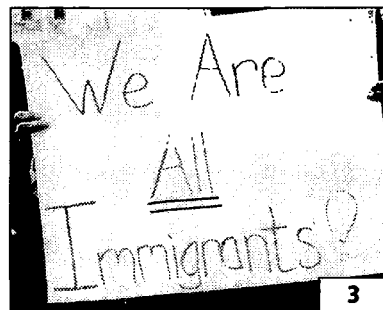 We Are
All
Immigrants!
3